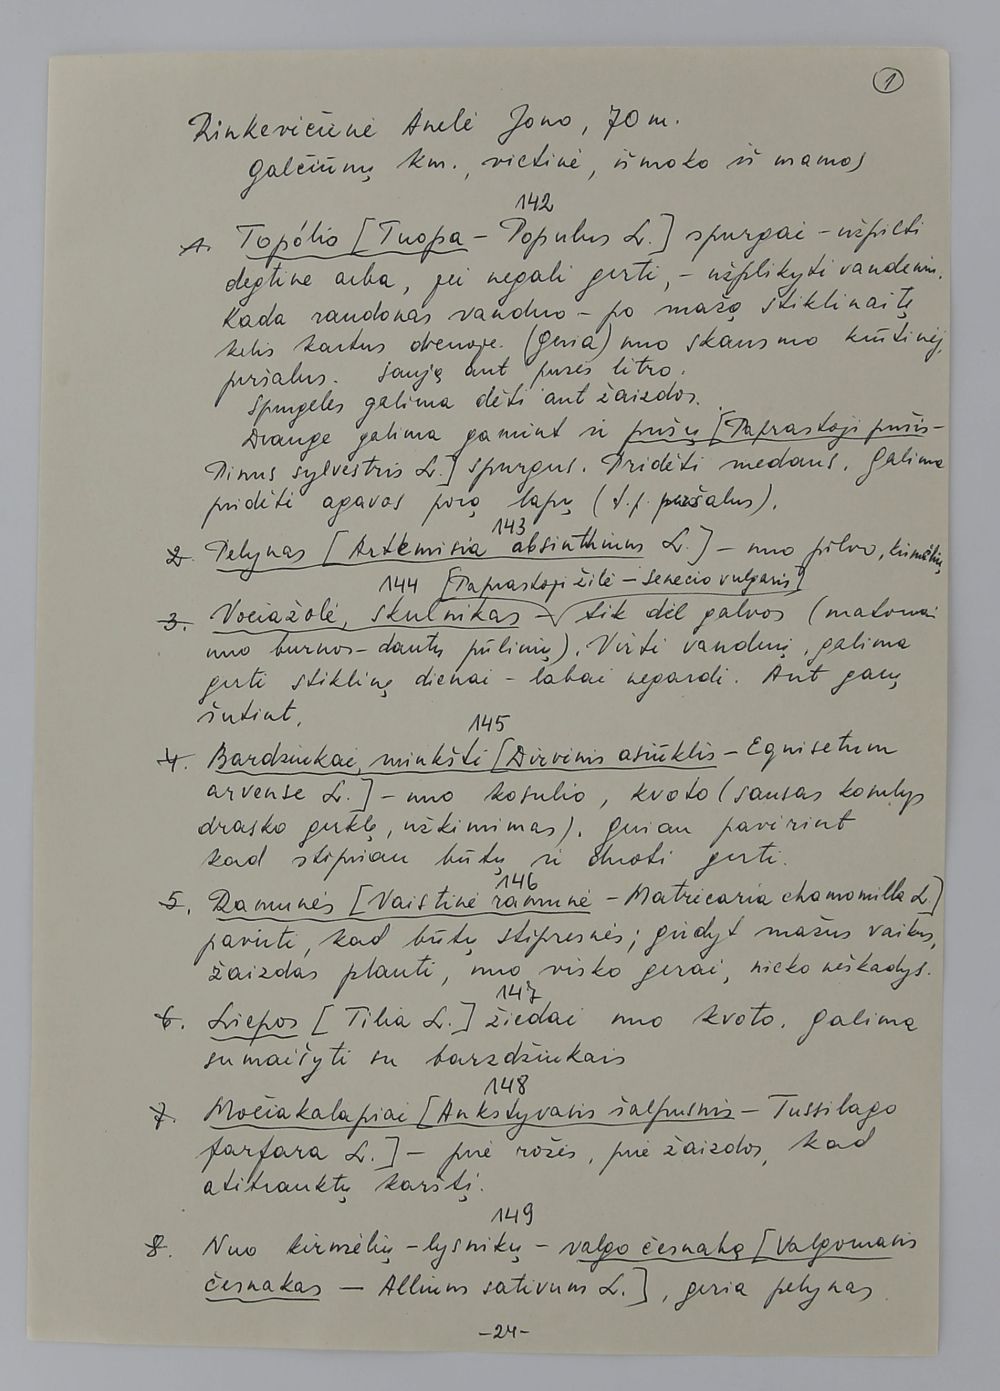 1
Rinkevičienė Anelė Jono, 70 m.
Galčiūnų km., vietinė, išmoko iš mamos
142
1. Topólio [Tuopa – Populus L.] spurgai – užpilti
degtine arba, jei negali gerti, – užplikyti vandeniu.
Kada raudonas vanduo – po mažą stiklinaitę
kelis kartus dienoje. (Geria) nuo skausmo krūtinėj,
peršalus. Saują ant pusės litro.
Spurgeles galima dėti ant žaizdos.
Drauge galima gamint ir pušų [Paprastoji pušis –
Pinus sylvestris L.] spurgus. Pridėti medaus. Galima
pridėti agavos porą lapų (t.p. peršalus).
143
2. Pelynas [Artemisia absinthium L.] – nuo pilvo, kirmėlių
144 [Paprastoji žilė – Senecio vulgaris]
3. Vociažolė, skulnikas – tik dėl galvos (matomai
nuo burnos – dantų pūlinių). Virti vandenį, galima
gerti stiklinę dienai – labai negardi. Ant garų
šutint.
145
4. Bardziukai, minkšti [Dirvinis asiūklis – Equisetum
arvense L.] – nuo kosulio, kvoto (sausas kosulys
drasko gerklę, užkimimas). Geriau pavirint
kad stipriau būtų ir duoti gerti.
146
5. Ramunės [Vaistinė ramunė – Matricaria chamomilla L.]
pavirti, kad būtų stipresnės; girdyt mažus vaikus,
žaizdas plauti, nuo visko gerai, nieko neškadys.
147
6. Liepos [Tilia L.] žiedai nuo kvoto. Galima
sumaišyti su barzdžiukais
148
7. Močiakalapiai [Ankstyvasis šalpusnis – Tussilago
farfara L.] – prie rožės, prie žaizdos, kad
atitrauktų karštį.
149
8. Nuo kirmėlių – lysnikų – valgo česnaką [Valgomasis
česnakas — Allium sativum L.], geria pelynas
–24–